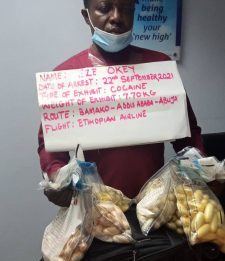 being
healthy
your
'new high'
NAME: EZE OKEY
DATE OF ARREST: 22ND SEPTEMBER 2021
TYPE OF EXHIBIT: COCAINE
WEIGHT OF EXHIBIT: 7.70KG
ROUTE: BAMAKO-ADDIS ABABA-ABUJA
FLIGHT: ETHIOPIAN AIRLINE